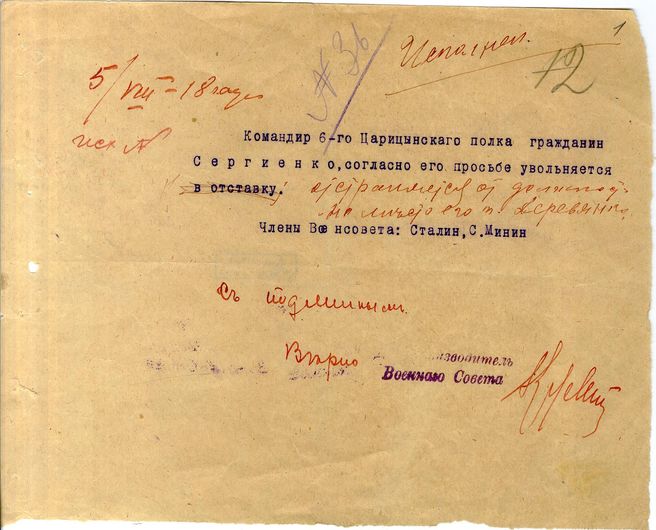 1
№ 36
Исполнен.
12
5/VIII - 18 года
исх №
Командир 6-го Царицынскаго полка гражданин
Сергиенко,согласно его просьбе увольняется
в отставку. отстраняется от
на место его т. Деревянко
Члены Военсовета: Сталин,С.Минин
Съ подлиным
Верно
изводитель
Военнаго Совета